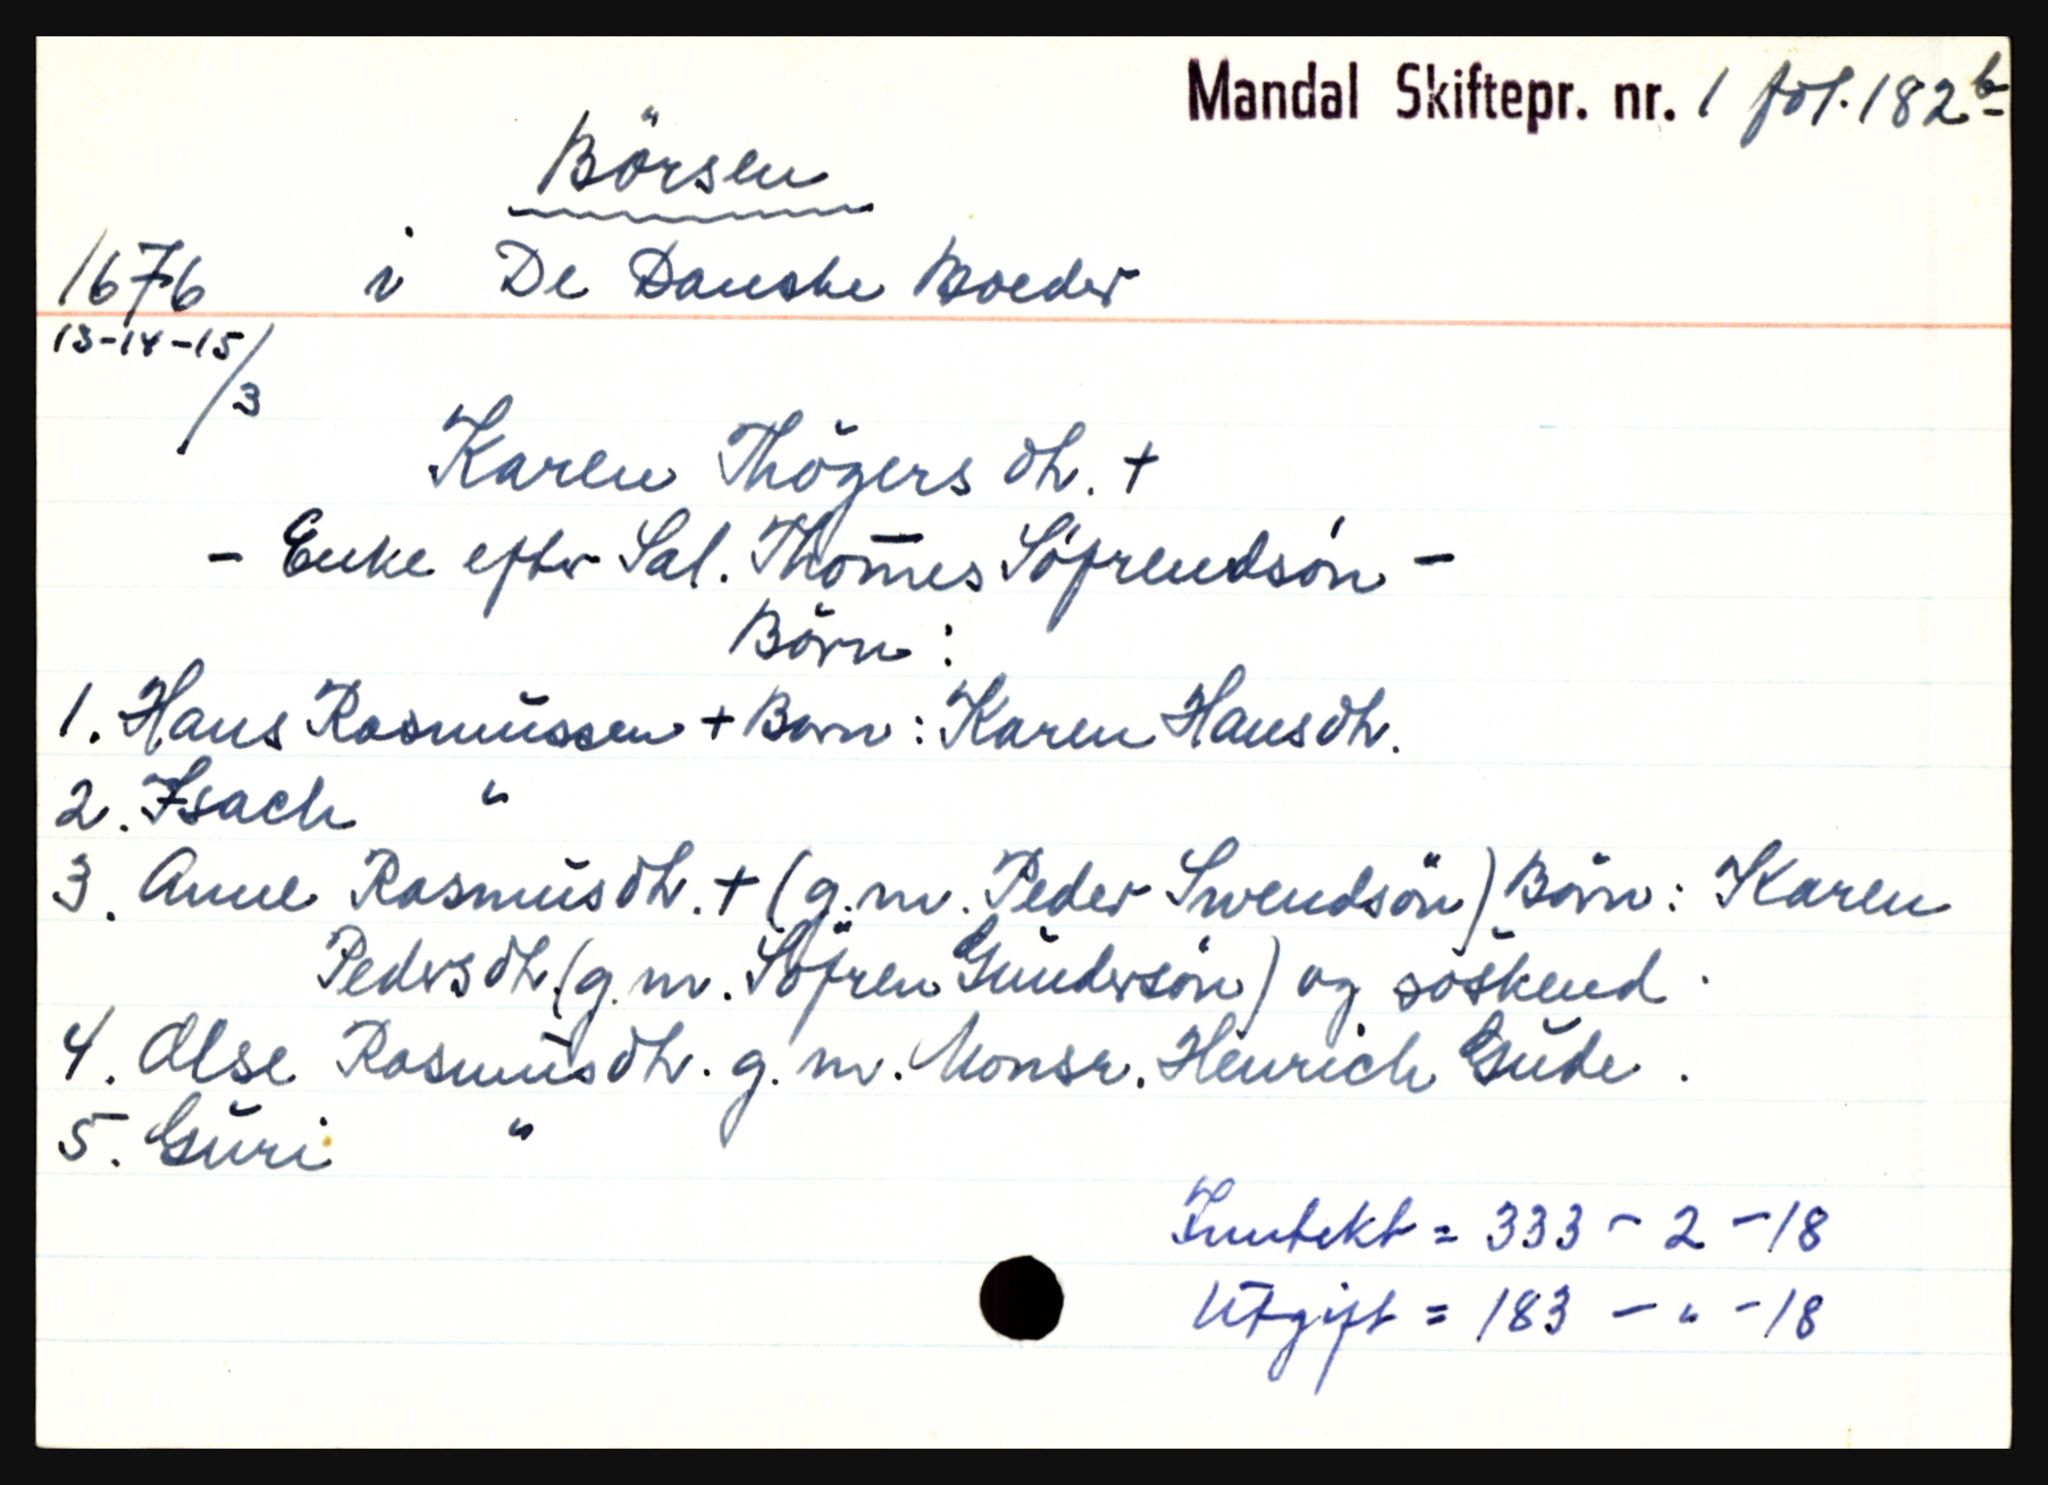 Mandal Skiftepr. nr. 1 fol. 182b
Börsen
1676 i De Danske Boeder
13-14-15/3
Karen Thögers dh. +
- Enke efter Sal. Thom̄es Söfrendsön -
Börn :
1. Hans Rasmŭssen + Barn : Karen Hansdh.
2. Isach "
3. Anne Rasmŭsdh. + (g.m. Peder Swendsön) Börn : Karen
Pedersdh. (g.m. Söfren Gŭndersön) og söskend .
4. Alse Rasmŭsdh. g.m. Monsr. Henrich Gŭde .
5. Gŭri "
Inntekt = 333 - 2 - 18
Utgift = 183 - " - 18